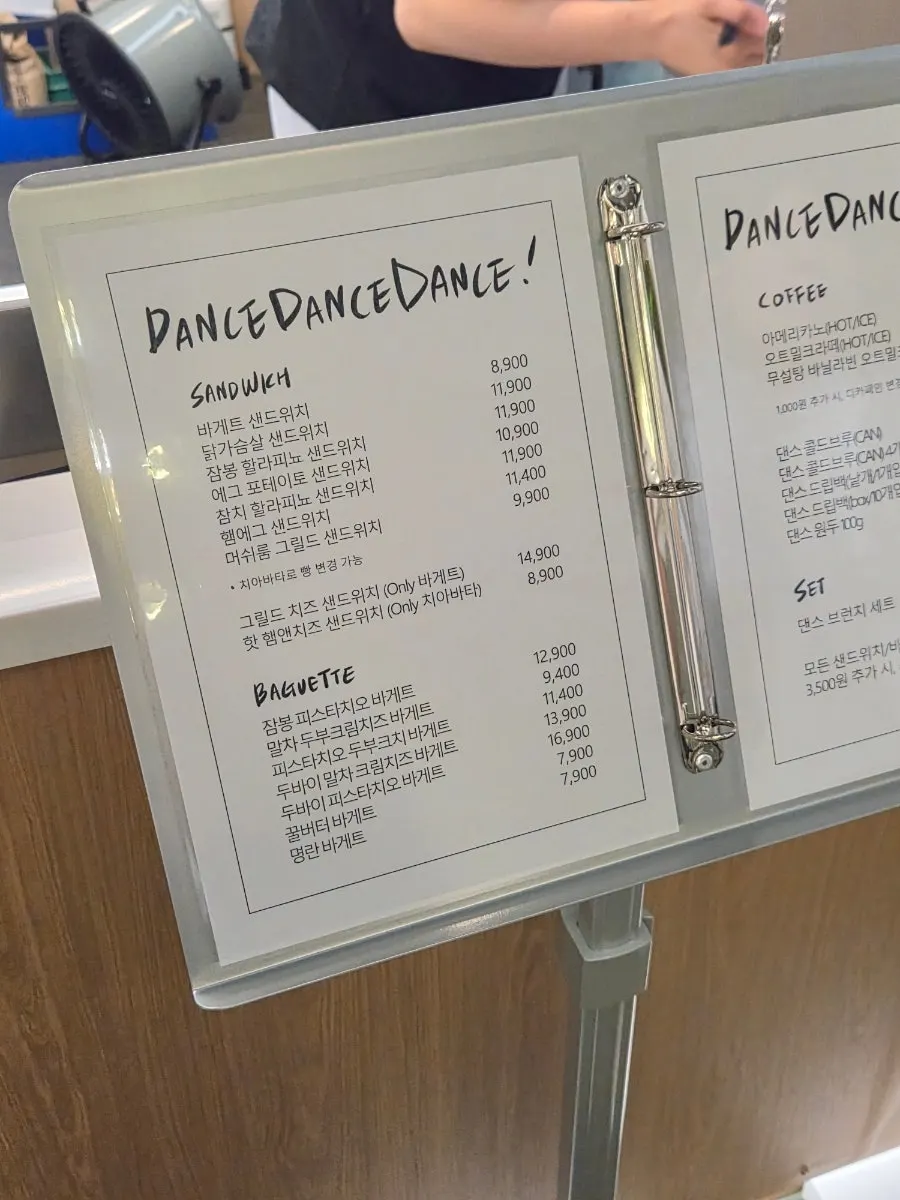 DANCEDANCEDANCE!
SANDWICH
바게트 샌드위치 8,900
닭가슴살 샌드위치 11,900
잠봉 할라피뇨 샌드위치 11,900
에그 포테이토 샌드위치 10,900
참치 할라피뇨 샌드위치 11,900
햄에그 샌드위치 11,400
머쉬룸 그릴드 샌드위치 9,900
• 치아바타로 빵 변경 가능
그릴드 치즈 샌드위치 (Only 바게트) 14,900
핫 햄앤치즈 샌드위치 (Only 치아바타) 8,900
BAGUETTE
잠봉 피스타치오 바게트 12,900
말차 두부크림치즈 바게트 9,400
피스타치오 두부크치 바게트 11,400
두바이 말차 크림치즈 바게트 13,900
두바이 피스타치오 바게트 16,900
꿀버터 바게트 7,900
명란 바게트 7,900
DANCEDANC
COFFEE
아메리카노(HOT/ICE)
오트밀크라떼(HOT/ICE)
무설탕 바닐라빈 오트밀
1,000원 추가 시, 디카페인 변경
댄스 콜드브루(CAN)
댄스 콜드브루(CAN) 4개
댄스 드립백(낱개/1개입
댄스 드립백(box/10개입
댄스 원두 100g
SET
댄스 브런치 세트
모든 샌드위치/바
3,500원 추가 시,